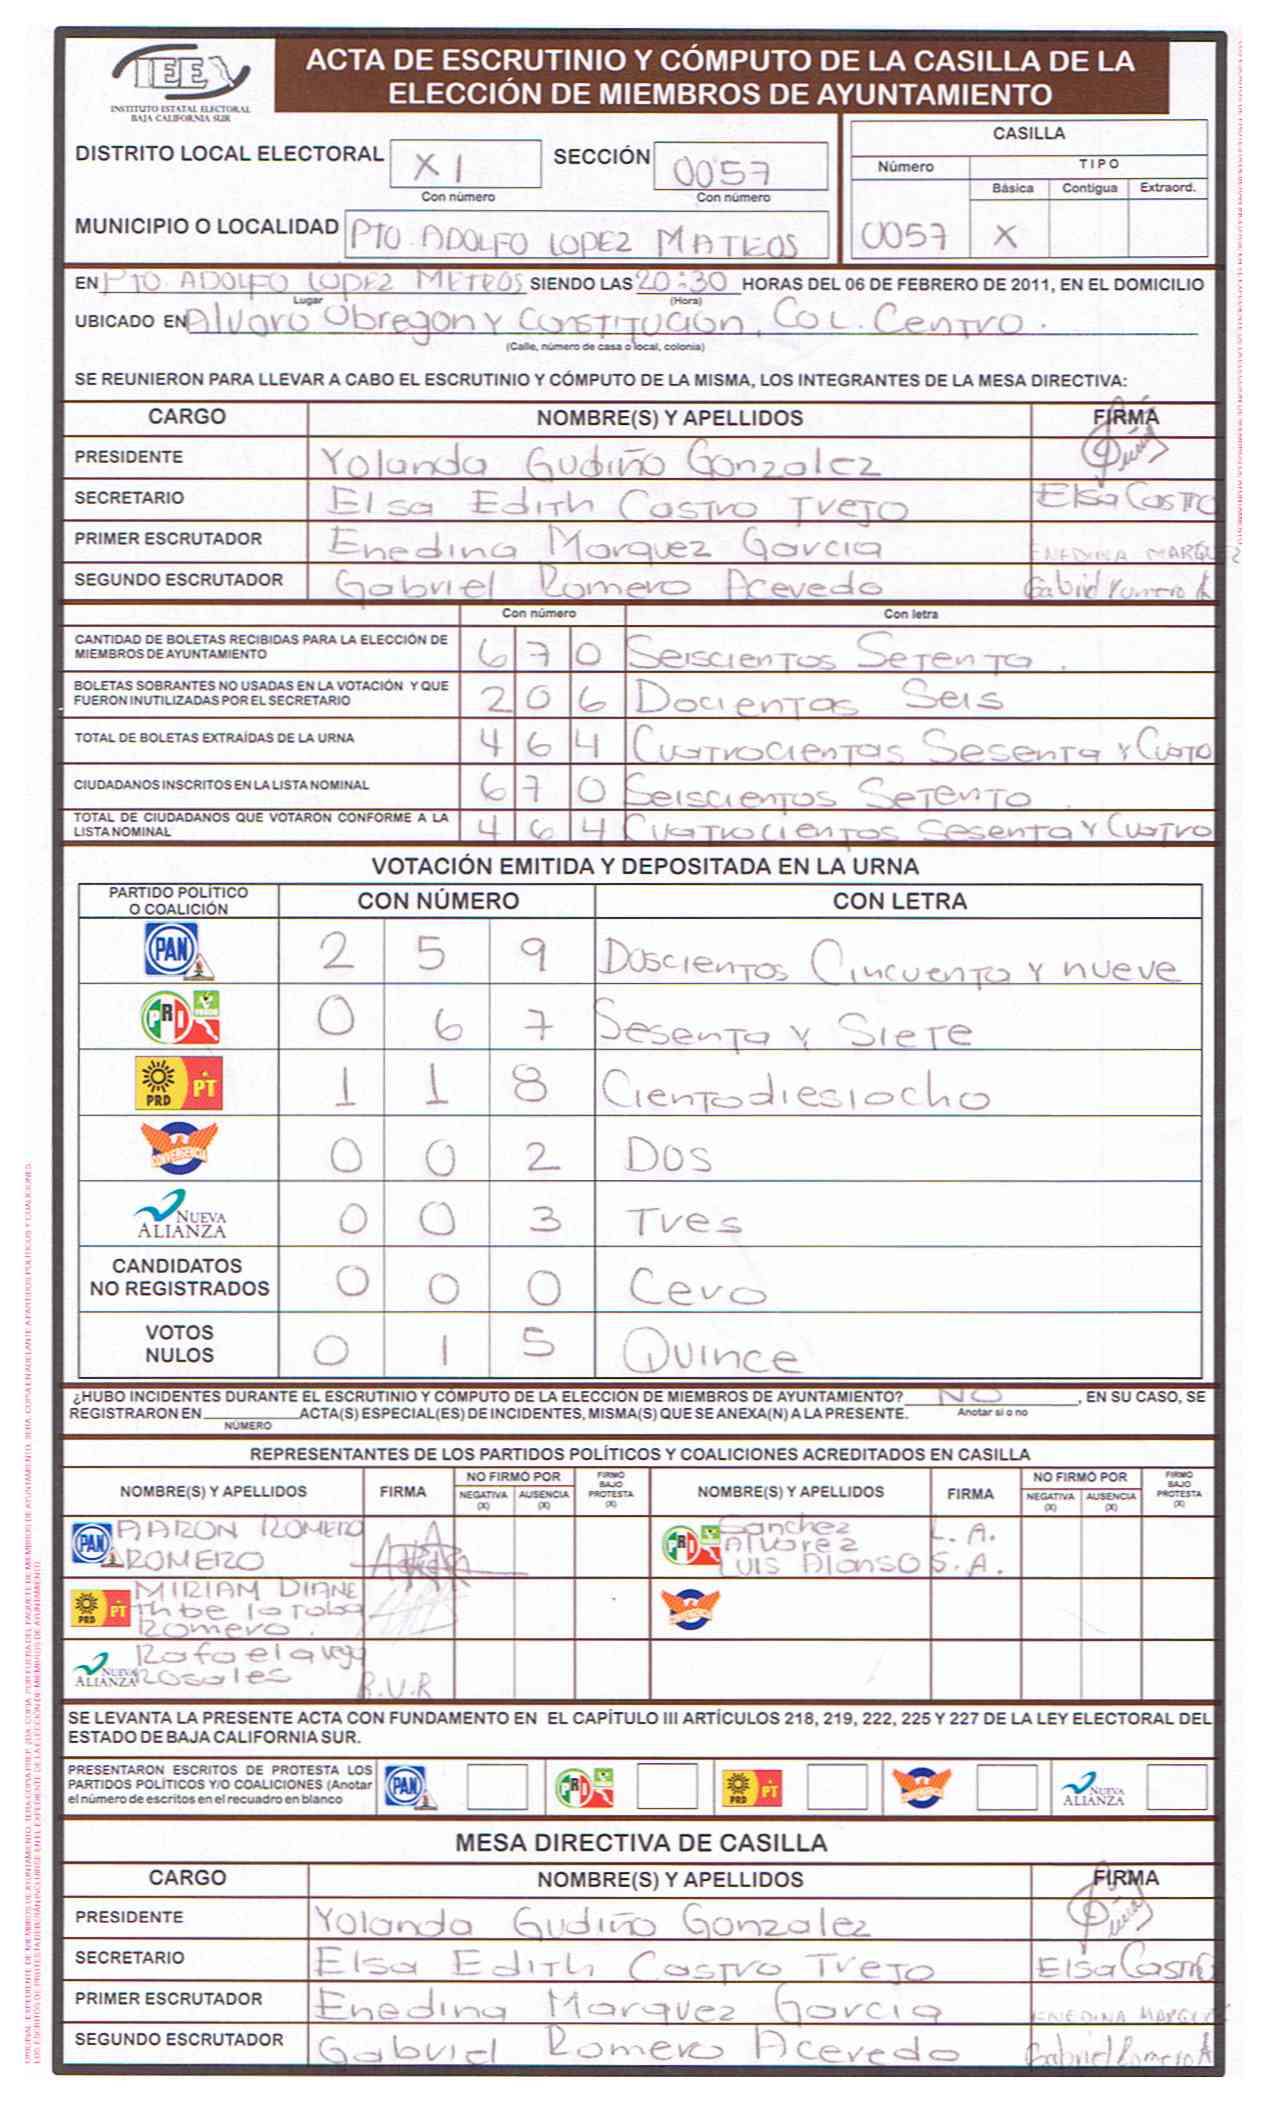 IEE
INSTITUTO ESTATAL ELECTORAL
BAJA CALIFORNIA SUR
ACTA DE ESCRUTINIO Y CÓMPUTO DE LA CASILLA DE LA
ELECCIÓN DE MIEMBROS DE AYUNTAMIENTO
DISTRITO LOCAL ELECTORAL XI SECCIÓN 0057
Con número Con número
MUNICIPIO O LOCALIDAD PTO. ADOLFO LOPEZ MATEOS
CASILLA
Número TIPO
Básica Contigua Extraord.
0057 X
EN PTO. ADOLFO LOPEZ METEOS SIENDO LAS 20:30 HORAS DEL 06 DE FEBRERO DE 2011, EN EL DOMICILIO
Lugar (Hora)
UBICADO EN Alvaro Obregon y Constitucion, Col. Centro.
(Calle, número de casa o local, colonia)
SE REUNIERON PARA LLEVAR A CABO EL ESCRUTINIO Y CÓMPUTO DE LA MISMA, LOS INTEGRANTES DE LA MESA DIRECTIVA:
CARGO NOMBRE(S) Y APELLIDOS FIRMA
PRESIDENTE Yolanda Gudiño Gonzalez
SECRETARIO Elsa Edith Castro Trejo Elsa Castro
PRIMER ESCRUTADOR Enedina Marquez Garcia ENEDINA MARQUEZ
SEGUNDO ESCRUTADOR Gabriel Romero Acevedo Gabriel Romero A
Con número Con letra
CANTIDAD DE BOLETAS RECIBIDAS PARA LA ELECCIÓN DE
MIEMBROS DE AYUNTAMIENTO 6 7 0 Seiscientos Setenta.
BOLETAS SOBRANTES NO USADAS EN LA VOTACIÓN Y QUE
FUERON INUTILIZADAS POR EL SECRETARIO 2 0 6 Docientas Seis
TOTAL DE BOLETAS EXTRAÍDAS DE LA URNA 4 6 4 Cuatrocientas Sesenta y Cuatro
CIUDADANOS INSCRITOS EN LA LISTA NOMINAL 6 7 0 Seiscientos Setenta.
TOTAL DE CIUDADANOS QUE VOTARON CONFORME A LA
LISTA NOMINAL 4 6 4 Cuatrocientos Sesenta y Cuatro
VOTACIÓN EMITIDA Y DEPOSITADA EN LA URNA
PARTIDO POLÍTICO
O COALICIÓN CON NÚMERO CON LETRA
PAN 2 5 9 Doscientos Cincuenta y nueve
PRI 0 6 7 Sesenta y Siete
PRD PT 1 1 8 Cientodiesiocho
CONVERGENCIA 0 0 2 Dos
NUEVA ALIANZA 0 0 3 Tres
CANDIDATOS
NO REGISTRADOS 0 0 0 Cero
VOTOS
NULOS 0 1 5 Quince
¿HUBO INCIDENTES DURANTE EL ESCRUTINIO Y CÓMPUTO DE LA ELECCIÓN DE MIEMBROS DE AYUNTAMIENTO? NO, EN SU CASO, SE
REGISTRARON EN ACTA(S) ESPECIAL(ES) DE INCIDENTES, MISMA(S) QUE SE ANEXA(N) A LA PRESENTE. Anotar si o no
NÚMERO
REPRESENTANTES DE LOS PARTIDOS POLÍTICOS Y COALICIONES ACREDITADOS EN CASILLA
NOMBRE(S) Y APELLIDOS FIRMA NO FIRMÓ POR NEGATIVA (X) AUSENCIA (X) FIRMÓ BAJO PROTESTA (X) NOMBRE(S) Y APELLIDOS FIRMA NO FIRMÓ POR NEGATIVA (X) AUSENCIA (X) FIRMÓ BAJO PROTESTA (X)
PAN AARON ROMERO
ROMERO
PRI Sanchez
Alvarez
Luis Alonso L. A.
S. A.
PRD PT MIRIAM DIANE
de la Toba
Romero.
NUEVA ALIANZA Rafaela Vega
Rosales R.V.R
SE LEVANTA LA PRESENTE ACTA CON FUNDAMENTO EN EL CAPÍTULO III ARTÍCULOS 218, 219, 222, 225 Y 227 DE LA LEY ELECTORAL DEL
ESTADO DE BAJA CALIFORNIA SUR.
PRESENTARON ESCRITOS DE PROTESTA LOS
PARTIDOS POLÍTICOS Y/O COALICIONES (Anotar
el número de escritos en el recuadro en blanco
PAN PRI PRD PT NUEVA ALIANZA
MESA DIRECTIVA DE CASILLA
CARGO NOMBRE(S) Y APELLIDOS FIRMA
PRESIDENTE Yolanda Gudiño Gonzalez
SECRETARIO Elsa Edith Castro Trejo Elsa Castro
PRIMER ESCRUTADOR Enedina Marquez Garcia ENEDINA MARQUEZ
SEGUNDO ESCRUTADOR Gabriel Romero Acevedo Gabriel Romero A